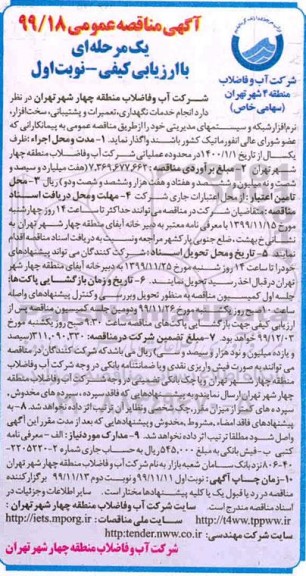 آگهی مناقصه عمومی ۹۹/۱۸
یک مرحله‌ای
با ارزیابی کیفی - نوبت اول
شرکت آب و فاضلاب
منطقه ۴ شهر تهران
(سهامی خاص)
شرکت آب و فاضلاب منطقه چهار شهر تهران در نظر
دارد انجام خدمات نگهداری، تعمیرات و پشتیبانی، سخت‌افزار،
نرم‌افزار شبکه و سیستمهای مدیریتی خود را از طریق مناقصه عمومی به پیمانکارانی که
عضو شورای عالی انفورماتیک کشور باشند واگذار نماید. ۱- مدت و محل اجراء: ظرف
یکسال از تاریخ ۱۴۰۰/۱/۱ در محدوده عملیاتی شرکت آب و فاضلاب منطقه چهار
شهر تهران ۲- مبلغ برآوردی مناقصه: ۷.۳۶۹.۶۷۷.۶۶۲ (هفت میلیارد و سیصد و
شصت و نه میلیون و ششصد و هفتاد و هفت هزار و ششصد و شصت و دو) ریال ۳- محل
تامین اعتبار: از محل اعتبارات جاری شرکت ۴- مهلت و محل دریافت اسناد
مناقصه: متقاضیان شرکت در مناقصه می‌توانند حداکثر تا ساعت ۱۴ روز چهارشنبه
مورخ ۱۳۹۹/۱۱/۱۵ با معرفی نامه معتبر به دبیرخانه آبفای منطقه چهار شهر تهران به
نشانی خ بهشت، ضلع جنوبی پارک شهر مراجعه و نسبت به دریافت اسناد مناقصه اقدام
نمایند ۵- تاریخ و محل تحویل اسناد: شرکت کنندگان می تواند پیشنهادهای
خود را تا ساعت ۱۴ روز شنبه مورخ ۱۳۹۹/۱۱/۲۵ به دبیرخانه آبفای منطقه چهار شهر
تهران در قبال اخذ رسید تحویل نمایند. ۶- تاریخ و زمان بازگشایی پاکت‌ها:
جلسه اول کمیسیون مناقصه به منظور تحویل و بررسی و کنترل پیشنهادهای واصله
صبح روز یکشنبه مورخ ۹۹/۱۱/۲۶ و دومین جلسه کمیسیون مناقصه پس از
ارزیابی کیفی جهت بازگشایی پاکت‌های مناقصه ساعت ۹:۳۰ صبح روز یکشنبه مورخ
۹۹/۱۲/۰۳ خواهد بود. ۷- مبلغ تضمین شرکت در مناقصه: ۳۱۱.۰۹۰.۳۳۰ (سیصد
و یازده میلیون و نود هزار و سیصد و سی) ریال می باشد که شرکت کنندگان در مناقصه
می توانند به صورت فیش واریزی نقدی و یا ضمانتنامه بانکی در وجه شرکت آب و فاضلاب
منطقه چهار شهر تهران و یا چک بانکی تضمینی در وجه شرکت آب و فاضلاب منطقه
چهار شهر تهران ارسال نمایند، به پیشنهادهایی که فاقد سپرده، سپرده‌های مخدوش،
سپرده های کمتر از میزان مقرر، چک شخصی و نظایر آن ترتیب اثر داده نخواهد شد. ۸- به
پیشنهادهای فاقد امضاء، مشروط، مخدوش و پیشنهادهایی که بعد از مدت مقرر این آگهی
واصل شود مطلقا ترتیب اثر داده نخواهد شد. ۹- مدارک مورد نیاز: الف - معرفی نامه
کتبی ب- فیش بانکی به مبلغ ۵۴۵.۰۰۰ ریال به حساب جاری شماره
نزد بانک سامان شعبه بازار به نام شرکت آب و فاضلاب منطقه چهار شهر تهران
۱۰- زمان چاپ آگهی: نوبت اول ۹۹/۱۱/۱۱ و نوبت دوم ۹۹/۱۱/۱۲ برگزار کننده
مناقصه در رد یا قبول یک یا کلیه پیشنهادها مختار است. سایر اطلاعات و جزئیات در
اسناد مناقصه مندرج است. سایت شرکت آب و فاضلاب منطقه چهار شهر تهران:
http://t4ww.tppww.ir سایت ملی مناقصات: http://iets.mporg.ir
سایت شرکت مهندسی: http:tender.nww.co.ir
شرکت آب و فاضلاب منطقه چهار شهر تهران